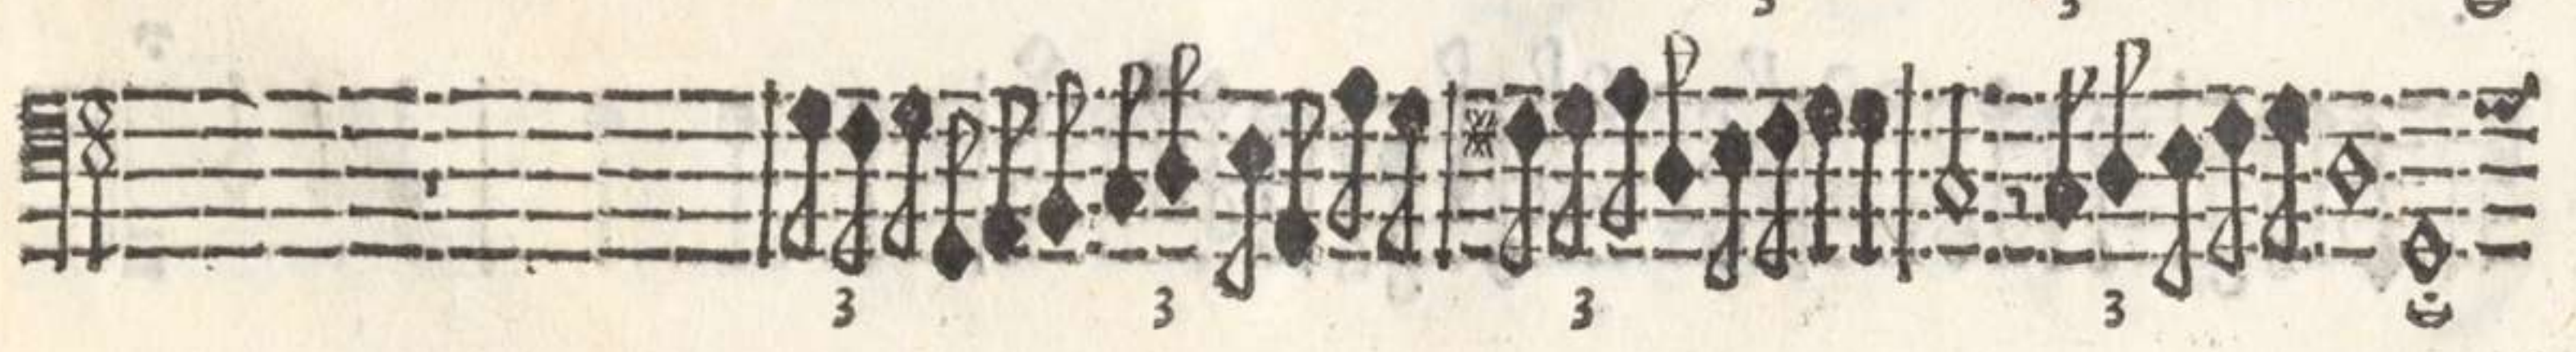 3 3
3 3 3 3